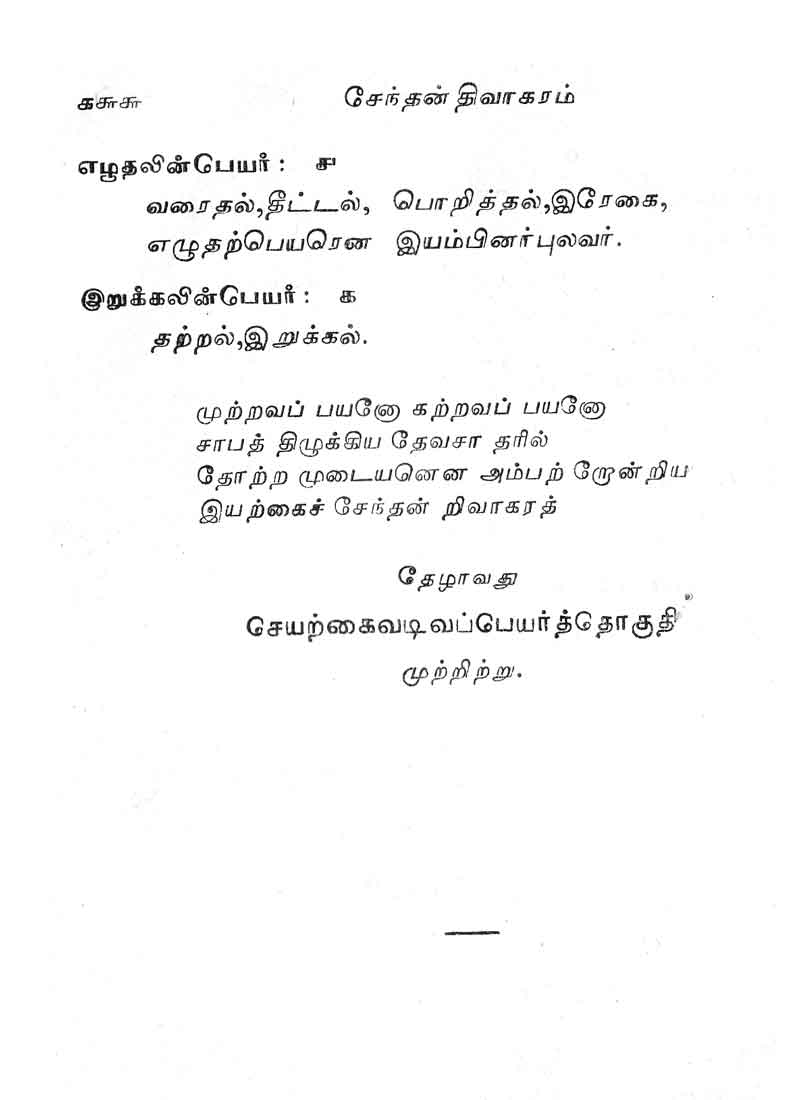 ககூகூ சேந்தன் திவாகரம்
எழுதலின்பெயர் : ௪
வரைதல்,தீட்டல், பொறித்தல்,இரேகை,
எழுதற்பெயரென இயம்பினர்புலவர்.
இறுக்கலின்பெயர் : க
தற்றல்,இறுக்கல்.
முற்றவப் பயனோ கற்றவப் பயனோ
சாபத் திழுக்கிய தேவசா தரில்
தோற்ற முடையனென அம்பற் றோன்றிய
இயற்கைச் சேந்தன் றிவாகரத்
தேழாவது
செயற்கைவடிவப்பெயர்த்தொகுதி
முற்றிற்று.